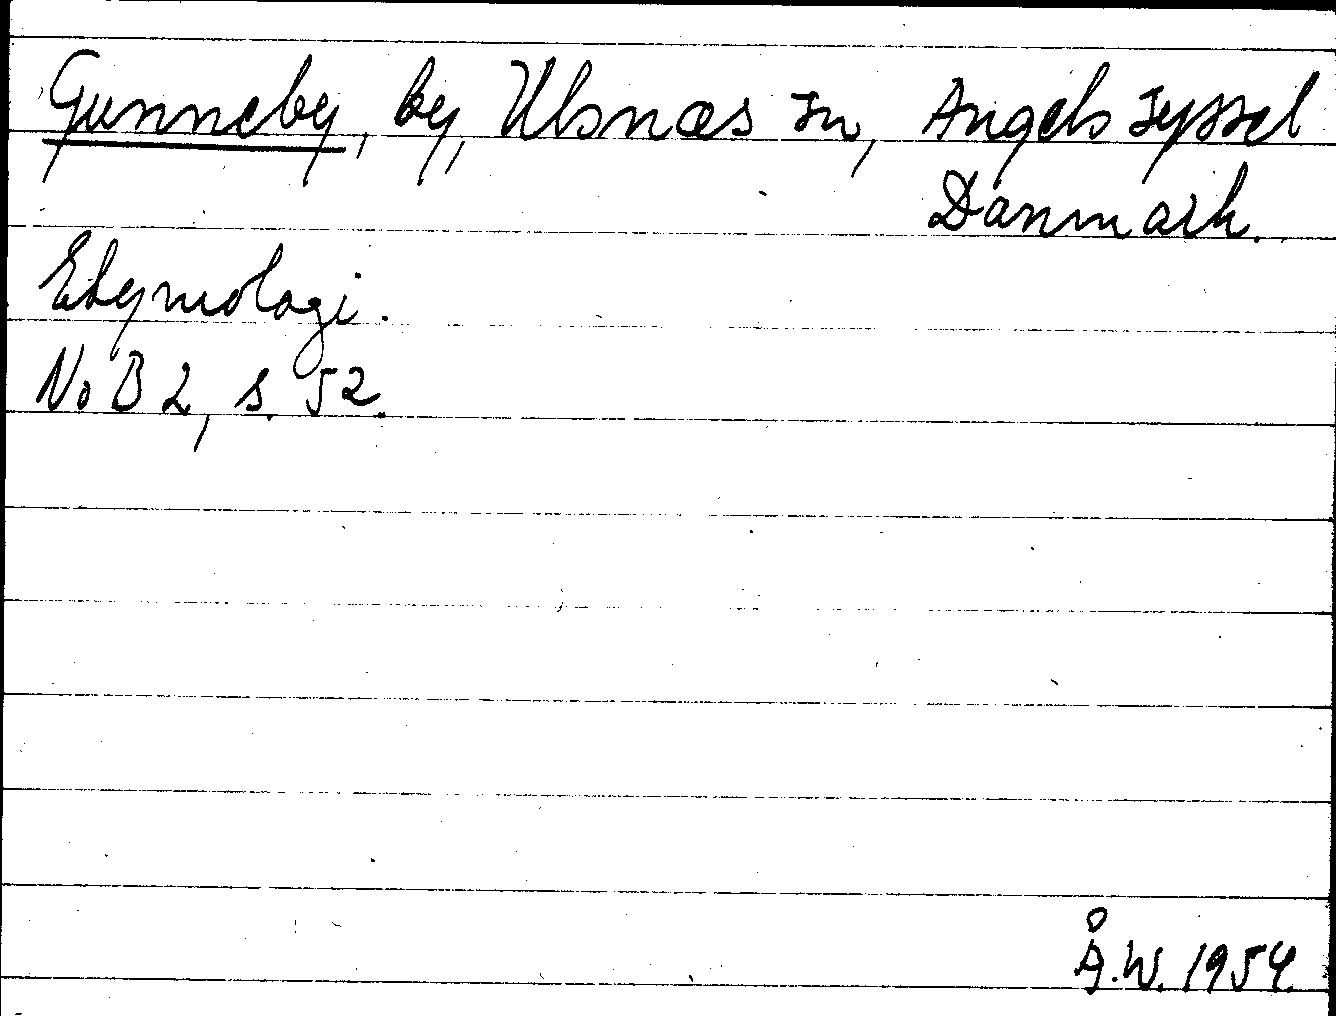 Gunneby, by, Ulsnæs sn, Angels syssel
Danmark.
Etymologi.
NoB 2, s. 52.
Å.W. 1954.